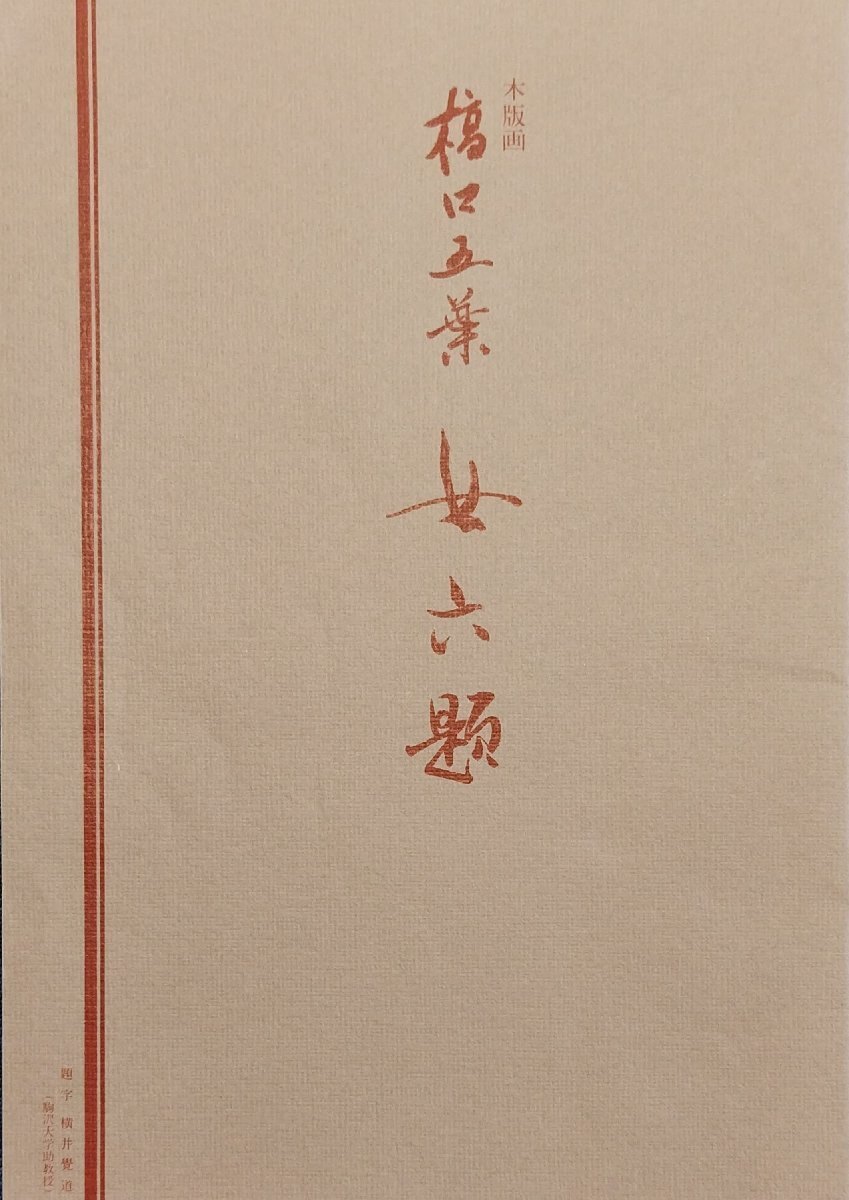 木版画
橋口五葉 女六題
題字 横井覺道
（駒沢大学助教授）